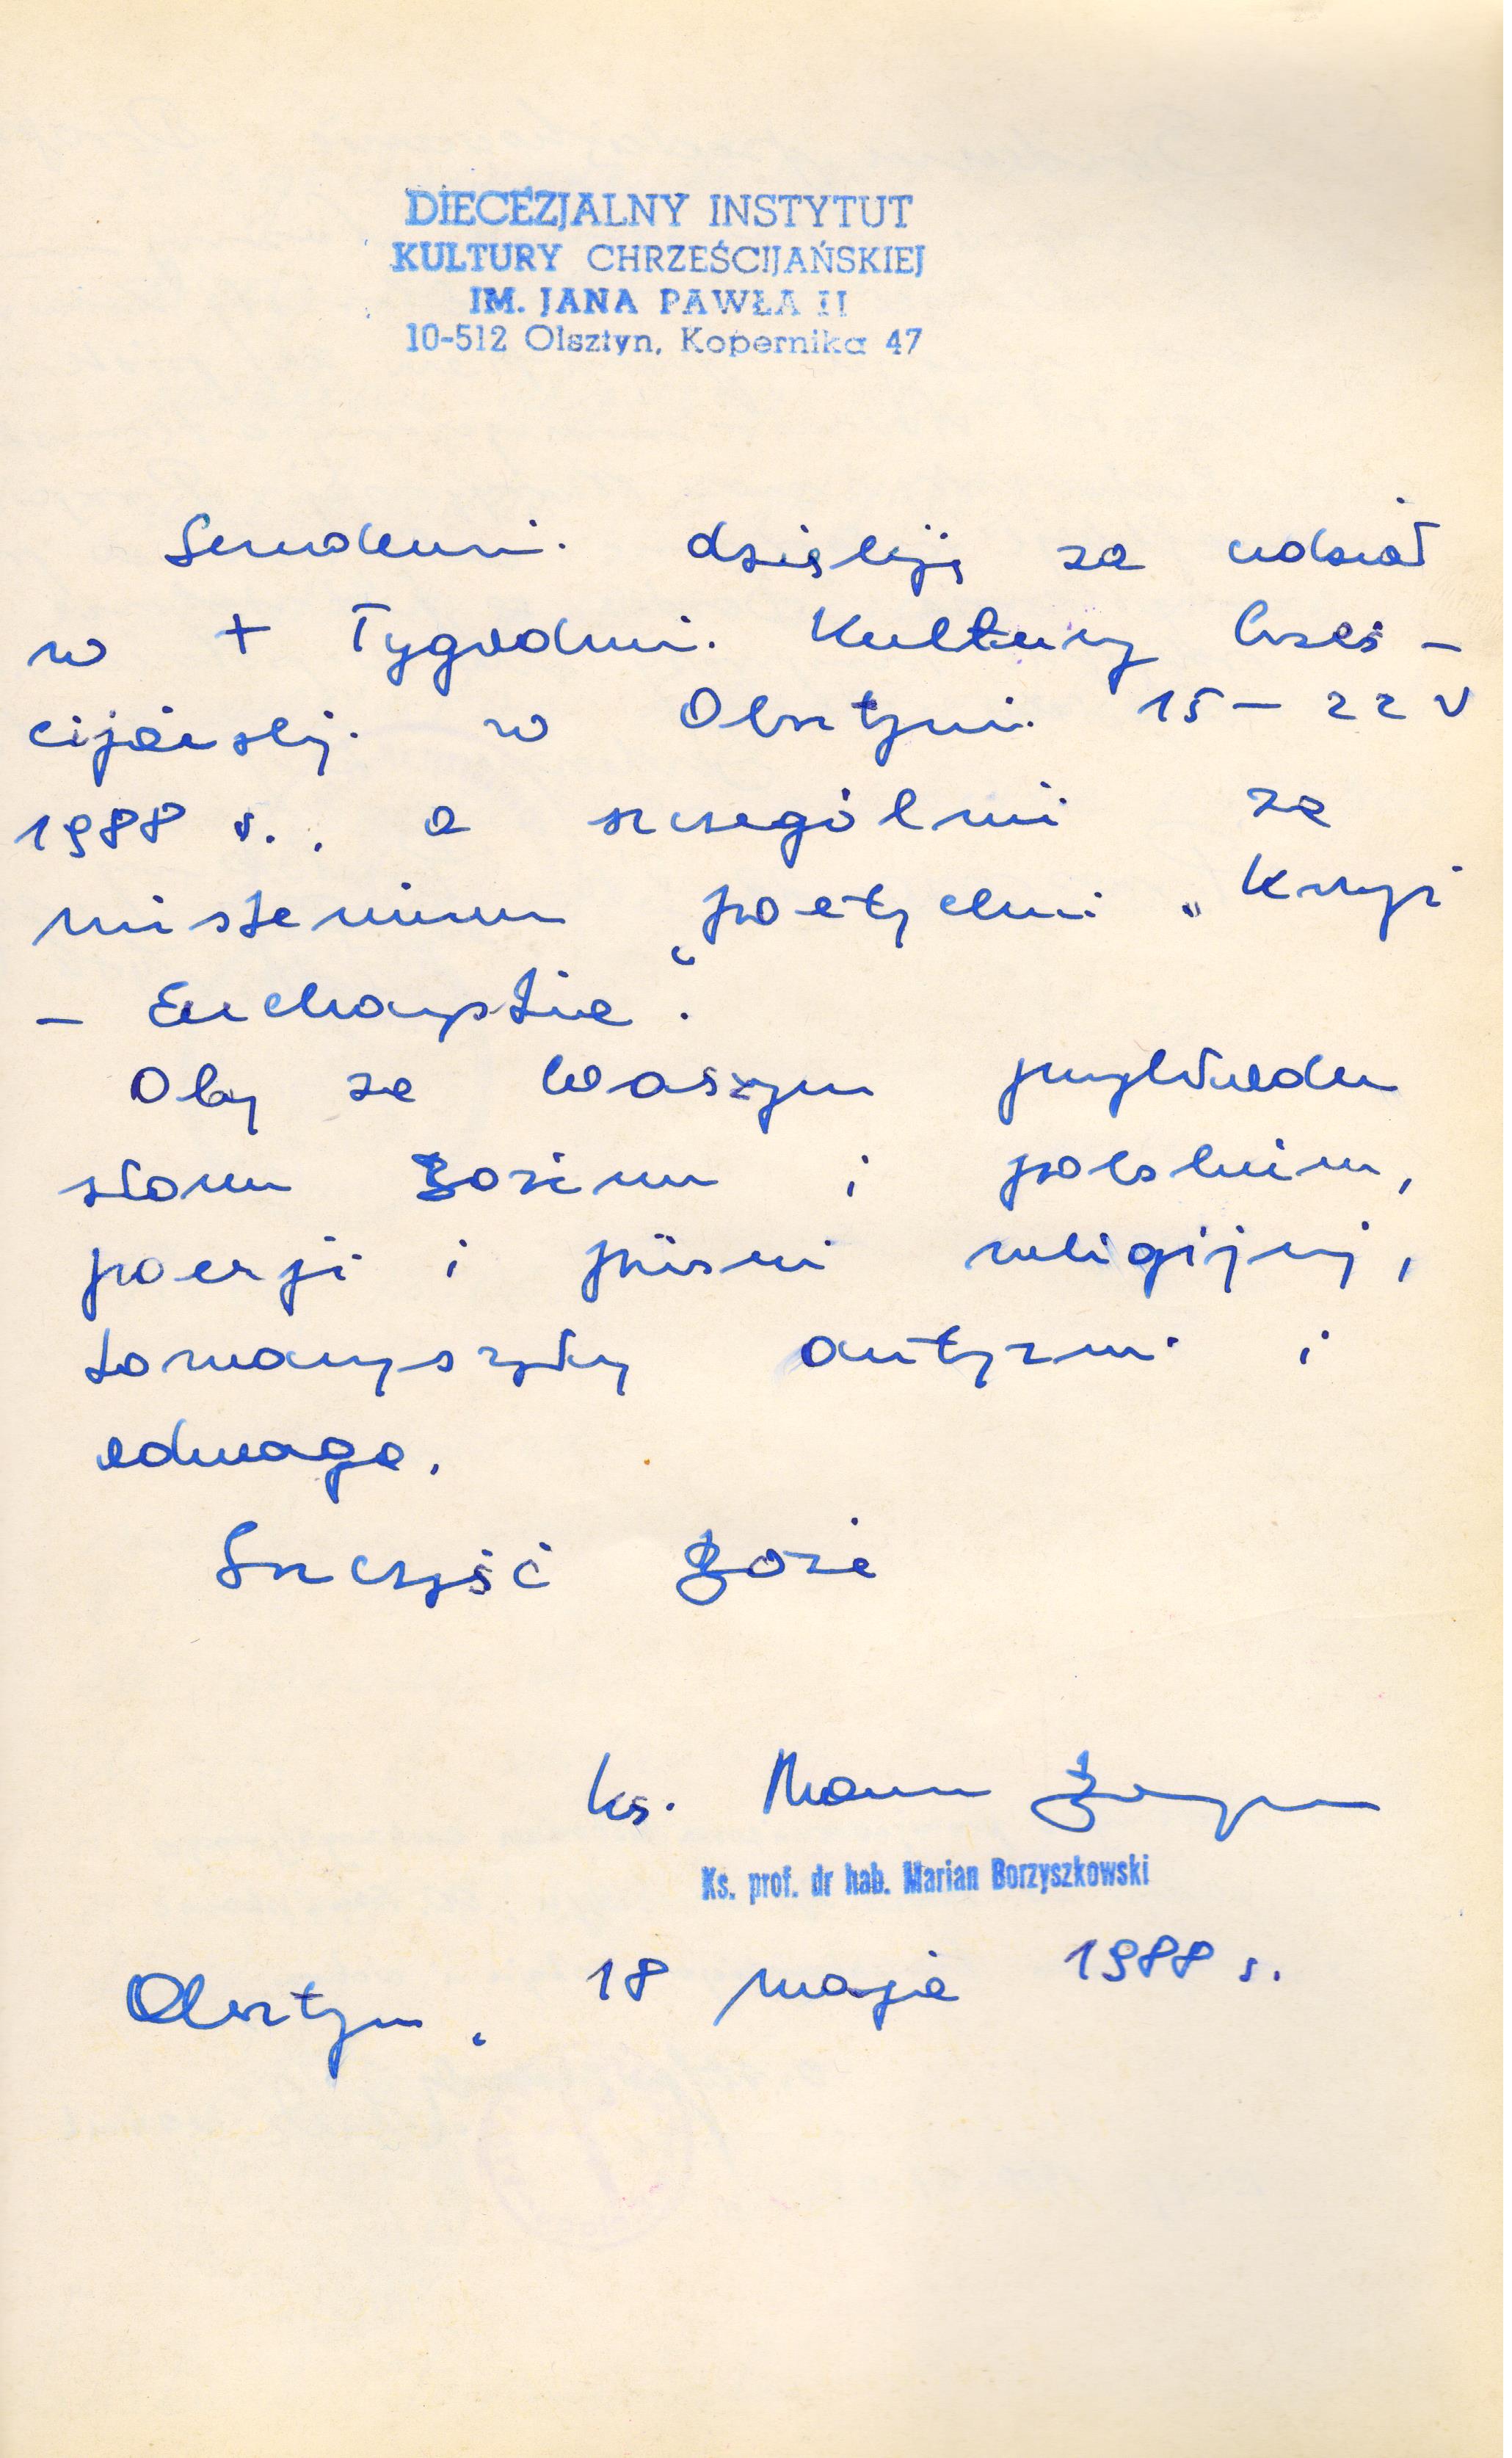 DIECEZJALNY INSTYTUT
KULTURY CHRZEŚCIJAŃSKIEJ
IM. JANA PAWŁA II
10-512 Olsztyn, Kopernika 47
Serdecznie dziękuję za udział
w X Tygodniu Kultury Chrześ-
cijańskiej w Olsztynie 15-22 V
1988 r., a szczególnie za
misterium poetyckie „Krzyż
- Eucharystia".
Oby za Waszym przykładem
słowu Bożemu i polskiemu,
poezji i pieśni religijnej,
towarzyszyły autyzm i
odwaga.
Szczęść Boże
ks. Marian
Ks. prof. dr hab. Marian Borzyszkowski
Olsztyn, 18 maja 1988 r.